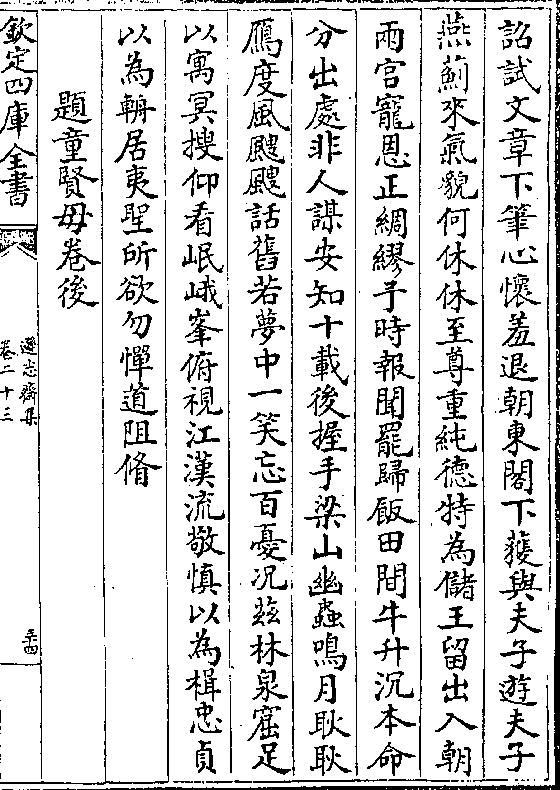 詔試文章下筆心懷羞退朝東閣下𫉬與夫子遊夫子
燕薊來氣貌何休休至尊重純德特為儲王留出入朝
兩宫寵恩正綢繆予時報聞罷歸飯田間牛升沉本命
分出處非人謀安知十載後握手梁山幽蟲鳴月耿耿
鴈度風颼颼話舊若夢中一笑忘百憂况兹林泉窟足
以寓冥搜仰看岷峨峯俯視江漢流敬慎以為楫忠貞
以為輈居夷聖所欲勿憚道阻脩
題童賢母卷後
欽定四庫全書
遜志齋集
卷二十三
三十四